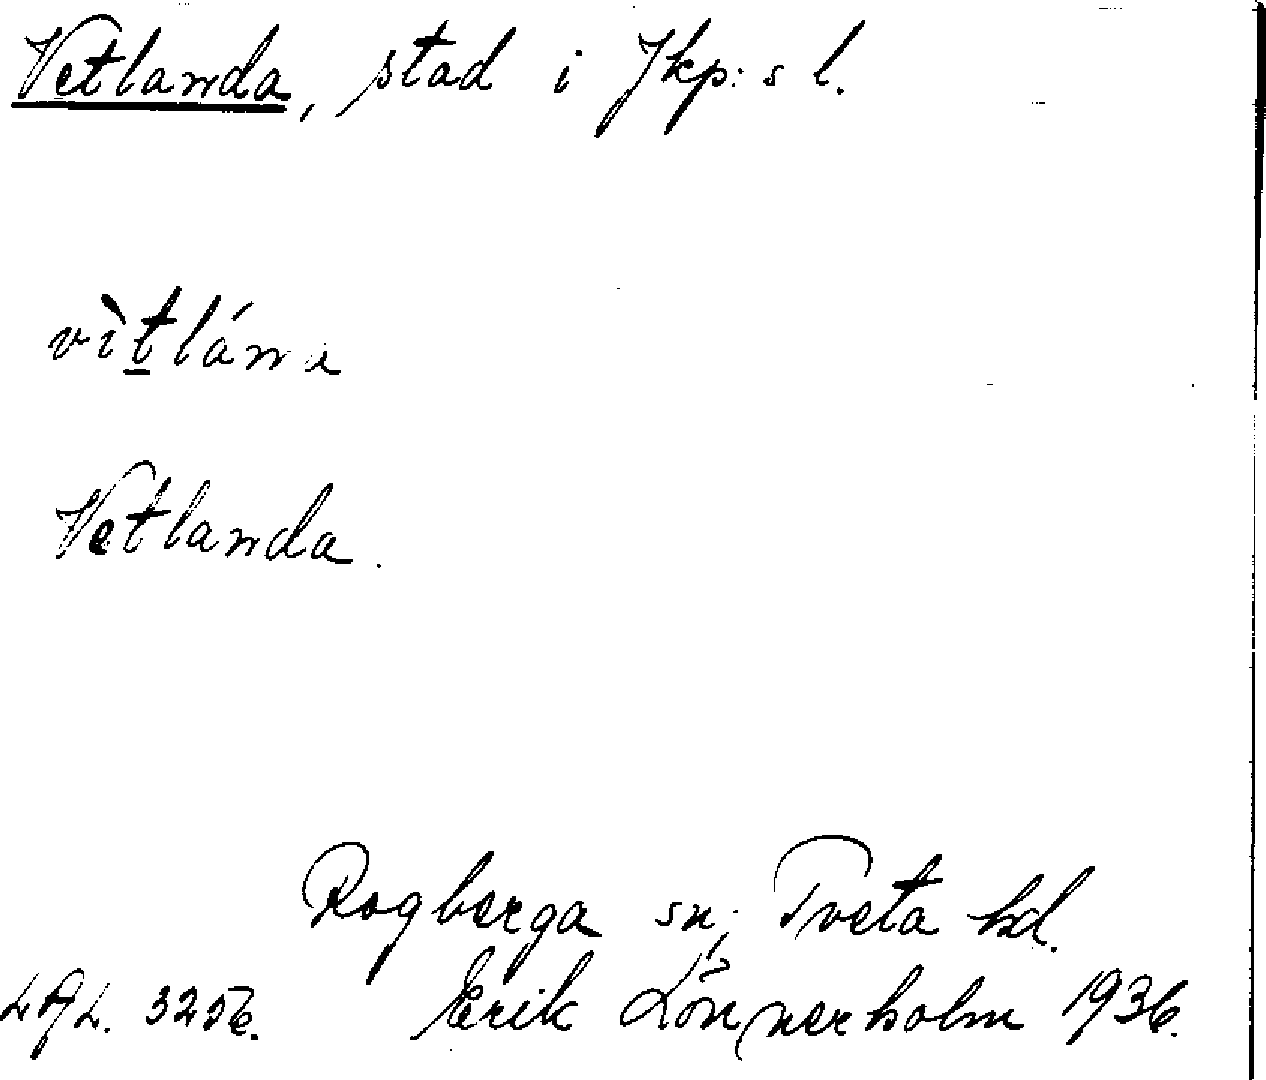 Vetlanda, stad i Jkp:s l.
vìt̲lána
Vetlanda.
Rogberga sn, Tveta hd.
LAL. 3256. Erik Lönnerholm 1936.